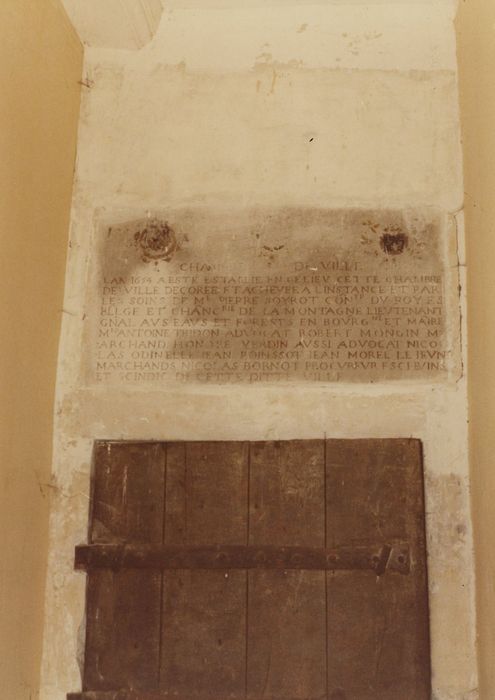 CHAM DE VILLE
LAN 1654 A ESTE ESTABLIE EN CE LIEV CETTE CHAMBRE
DE VILLE DECOREE ET ACHEVEE A LINSTANCE ET PAR
LES SOINS DE Mᴿ PIERRE BOYROT CONᴱᴿ DV ROY ES
BLLGE ET CHANCᴿᴵᴱ DE LA MONTAGNE LIEVTENANT
GNAL AVS EAVS ET FORESTS EN BOVRGᴺᴱ ET MAIRE
ANTOINE ADVOCAT ROBERT MONGIN M
ARCHAND HONORE VERDIN AVSSI ADVOCAT NICO
LAS ODINELLE JEAN POINSSOT JEAN MOREL LE JEVN
MARCHANDS NICOLAS BORNOT PROCVREVR ESCHEVINS
ET SCINDIC DE CETTE DITTE VILLE